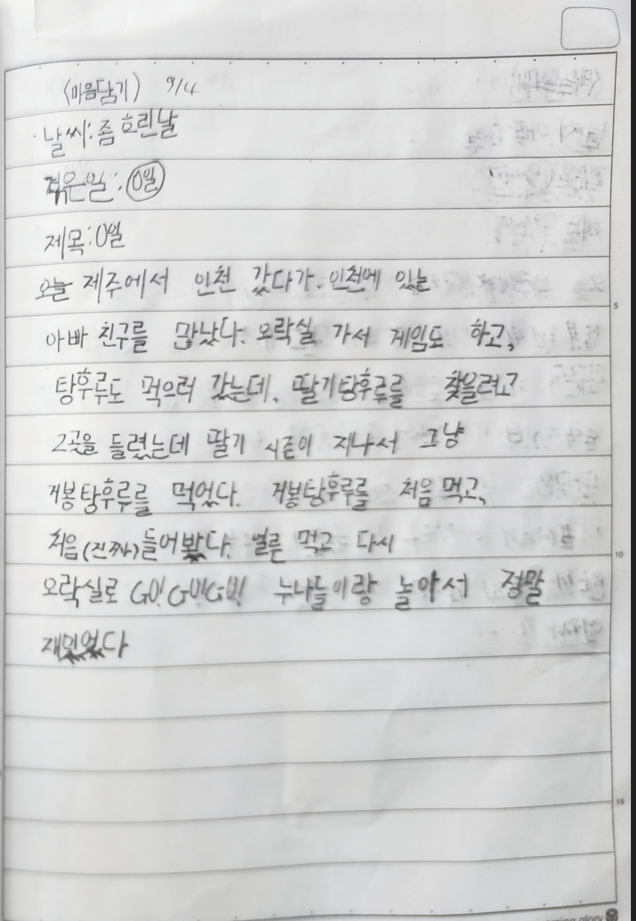 <마음담기> 9/4
날씨:좀 흐린날
겪은일:0월
제목:0월
오늘 제주에서 인천 갔다가. 인천에 있는
아빠 친구를 많났다. 오락실 가서 게임도 하고,
탕후루도 먹으러 갔는데, 딸기탕후루를 찾을려고
2곳을 들렸는데 딸기 시즌이 지나서 그냥
거봉탕후루를 먹었다. 거봉탕후루를 처음 먹고,
처음(진짜)들어봤다. 얼른 먹고 다시
오락실로 GO! GO!GO! 누나들이랑 놀아서 정말
재밌었다
5
10
15